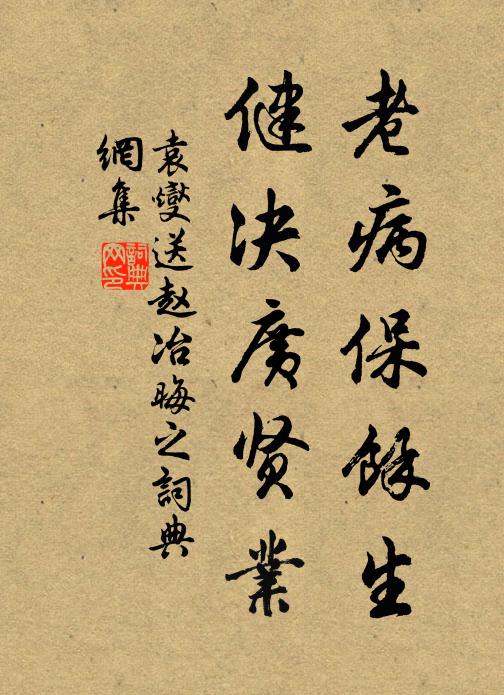 老病保餘生
健决廣贤業
袁燮送赵冶晦之詞典
網集
詞典
网印